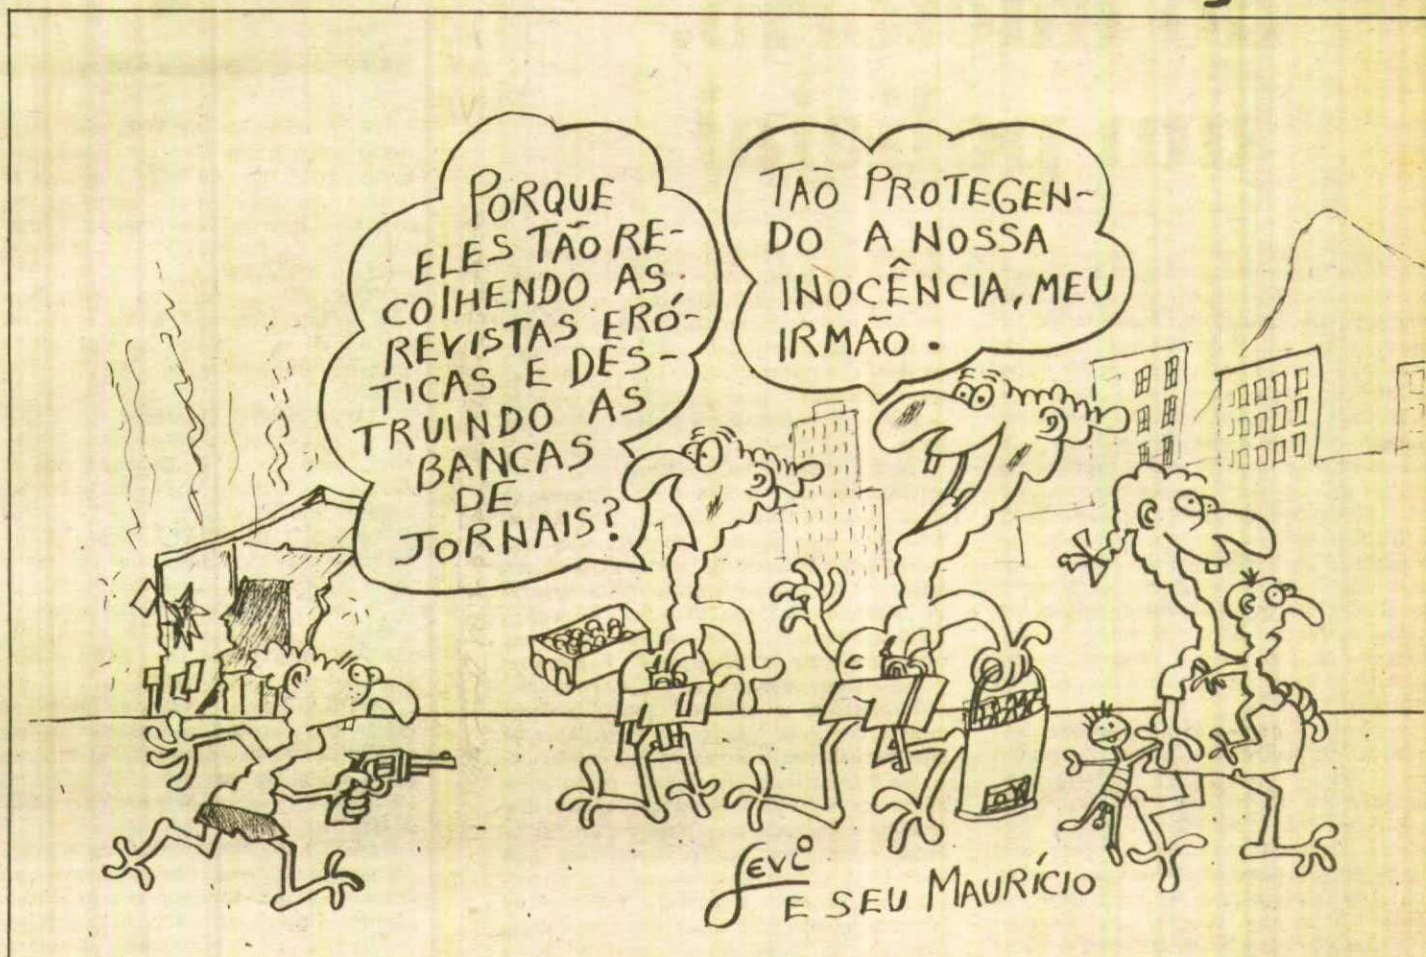 PORQUE
ELES TÃO RE-
COLHENDO AS
REVISTAS ERÓ-
TICAS E DES-
TRUINDO AS
BANCAS
DE
JORNAIS?
TÃO PROTEGEN-
DO A NOSSA
INOCÊNCIA, MEU
IRMÃO.
Levi
E SEU MAURÍCIO